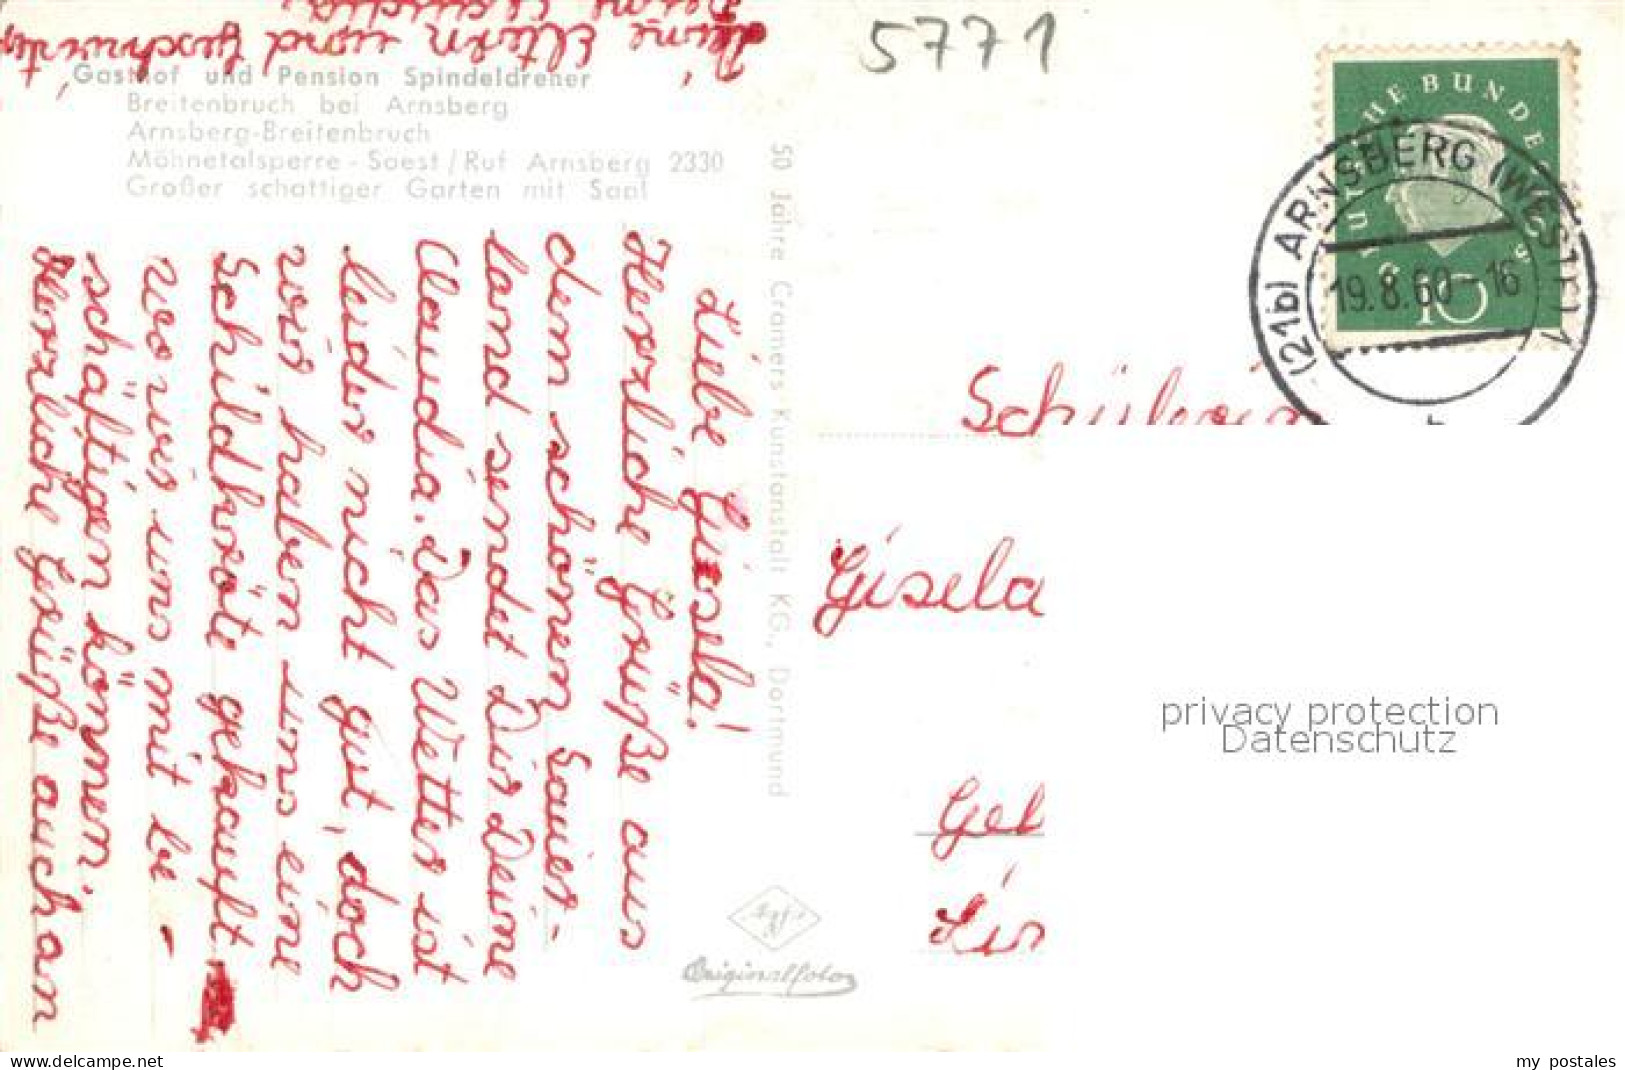 5771
Gasthof und Pension Spindeldreher
Breitenbruch bei Arnsberg
Arnsberg-Breitenbruch
Möhnetalsperre - Soest / Ruf Arnsberg 2330
Großer schattiger Garten mit Saal
50 Jahre Cramers Kunstanstalt KG., Dortmund
Liebe Gisela!
Herzliche Grüße aus
dem schönen Sauer-
land sendet Dir Deine
Claudia. Das Wetter ist
leider nicht gut, doch
wir haben uns eine
Schildkröte gekauft
wo wir uns mit be-
schäftigen können.
Herzliche Grüße auch an
Deine Eltern und Geschwister
Deine Claudia
Agfa
Originalfoto
DEUTSCHE BUNDESPOST
10
(21b) ARNSBERG (WESTF) 1
19.8.60-16
Schülerin
Gisela
privacy protection
Datenschutz
www.delcampe.net
my_postales